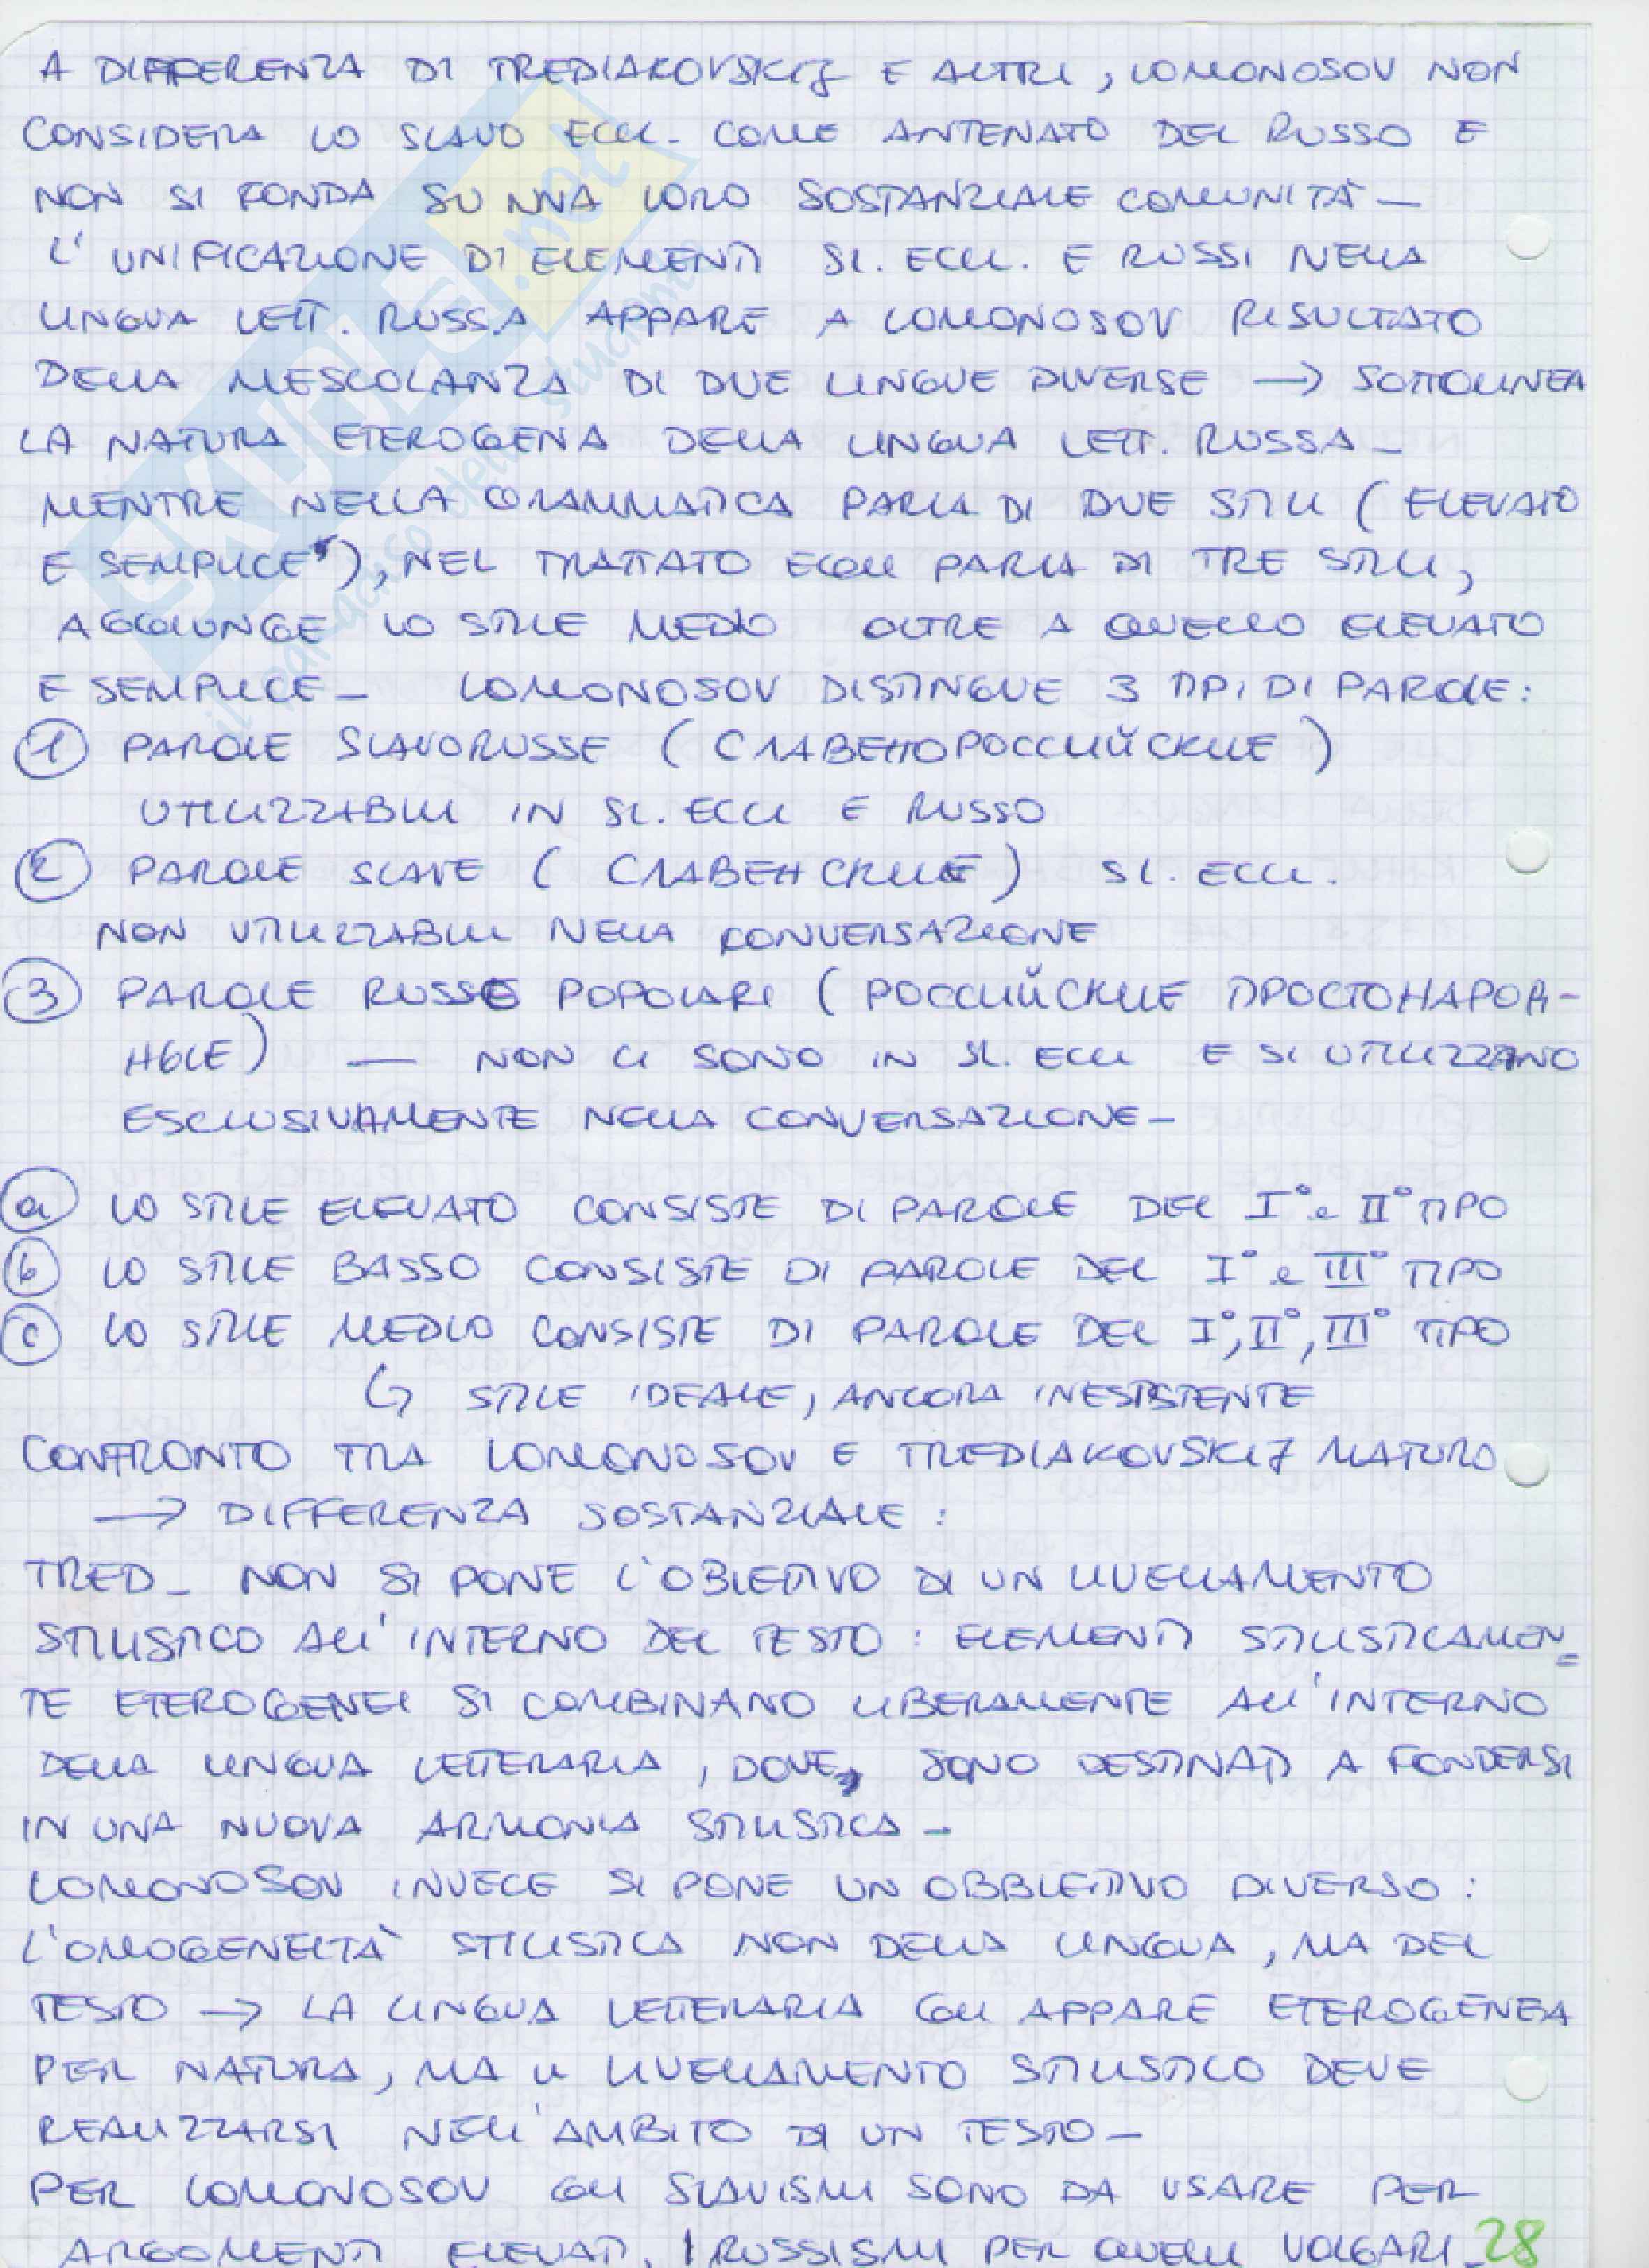 A DIFFERENZA DI TREDIAKOVSKIJ E ALTRI, LOMONOSOV NON
CONSIDERA LO SLAVO ECCL. COME ANTENATO DEL RUSSO E
NON SI FONDA SU UNA LORO SOSTANZIALE COMUNITÀ –
L'UNIFICAZIONE DI ELEMENTI SL. ECCL. E RUSSI NELLA
LINGUA LETT. RUSSA APPARE A LOMONOSOV RISULTATO
DELLA MESCOLANZA DI DUE LINGUE DIVERSE → SOTTOLINEA
LA NATURA ETEROGENA DELLA LINGUA LETT. RUSSA –
MENTRE NELLA GRAMMATICA PARLA DI DUE STILI (ELEVATO
E SEMPLICE), NEL TRATTATO EGLI PARLA DI TRE STILI,
AGGIUNGE LO STILE MEDIO OLTRE A QUELLO ELEVATO
E SEMPLICE – LOMONOSOV DISTINGUE 3 TIPI DI PAROLE:
1 PAROLE SLAVORUSSE (СЛАВЕНОРОССИЙСКИЕ)
UTILIZZABILI IN SL. ECCL E RUSSO
2 PAROLE SLAVE (СЛАВЕНСКИЕ) SL. ECCL.
NON UTILIZZABILI NELLA CONVERSAZIONE
3 PAROLE RUSSE POPOLARI (РОССИЙСКИЕ ПРОСТОНАРОД-
НЫЕ) — NON CI SONO IN SL. ECCL E SI UTILIZZANO
ESCLUSIVAMENTE NELLA CONVERSAZIONE –
a LO STILE ELEVATO CONSISTE DI PAROLE DEL I° e II° TIPO
b LO STILE BASSO CONSISTE DI PAROLE DEL I° e III° TIPO
c LO STILE MEDIO CONSISTE DI PAROLE DEL I°, II°, III° TIPO
↳ STILE IDEALE, ANCORA INESISTENTE
CONFRONTO TRA LOMONOSOV E TREDIAKOVSKIJ MATURO
→ DIFFERENZA SOSTANZIALE:
TRED – NON SI PONE L'OBIETTIVO DI UN LIVELLAMENTO
STILISTICO ALL'INTERNO DEL TESTO: ELEMENTI STILISTICAMEN=
TE ETEROGENEI SI COMBINANO LIBERAMENTE ALL'INTERNO
DELLA LINGUA LETTERARIA, DOVE, SONO DESTINATI A FONDERSI
IN UNA NUOVA ARMONIA STILISTICA –
LOMONOSOV INVECE SI PONE UN OBBIETTIVO DIVERSO:
L'OMOGENEITÀ STILISTICA NON DELLA LINGUA, MA DEL
TESTO → LA LINGUA LETTERARIA GLI APPARE ETEROGENEA
PER NATURA, MA IL LIVELLAMENTO STILISTICO DEVE
REALIZZARSI NELL'AMBITO DI UN TESTO –
PER LOMONOSOV GLI SLAVISMI SONO DA USARE PER
ARGOMENTI ELEVATI, I RUSSISMI PER QUELLI VOLGARI –
28
SKUOLA.net
il paradiso dello studente